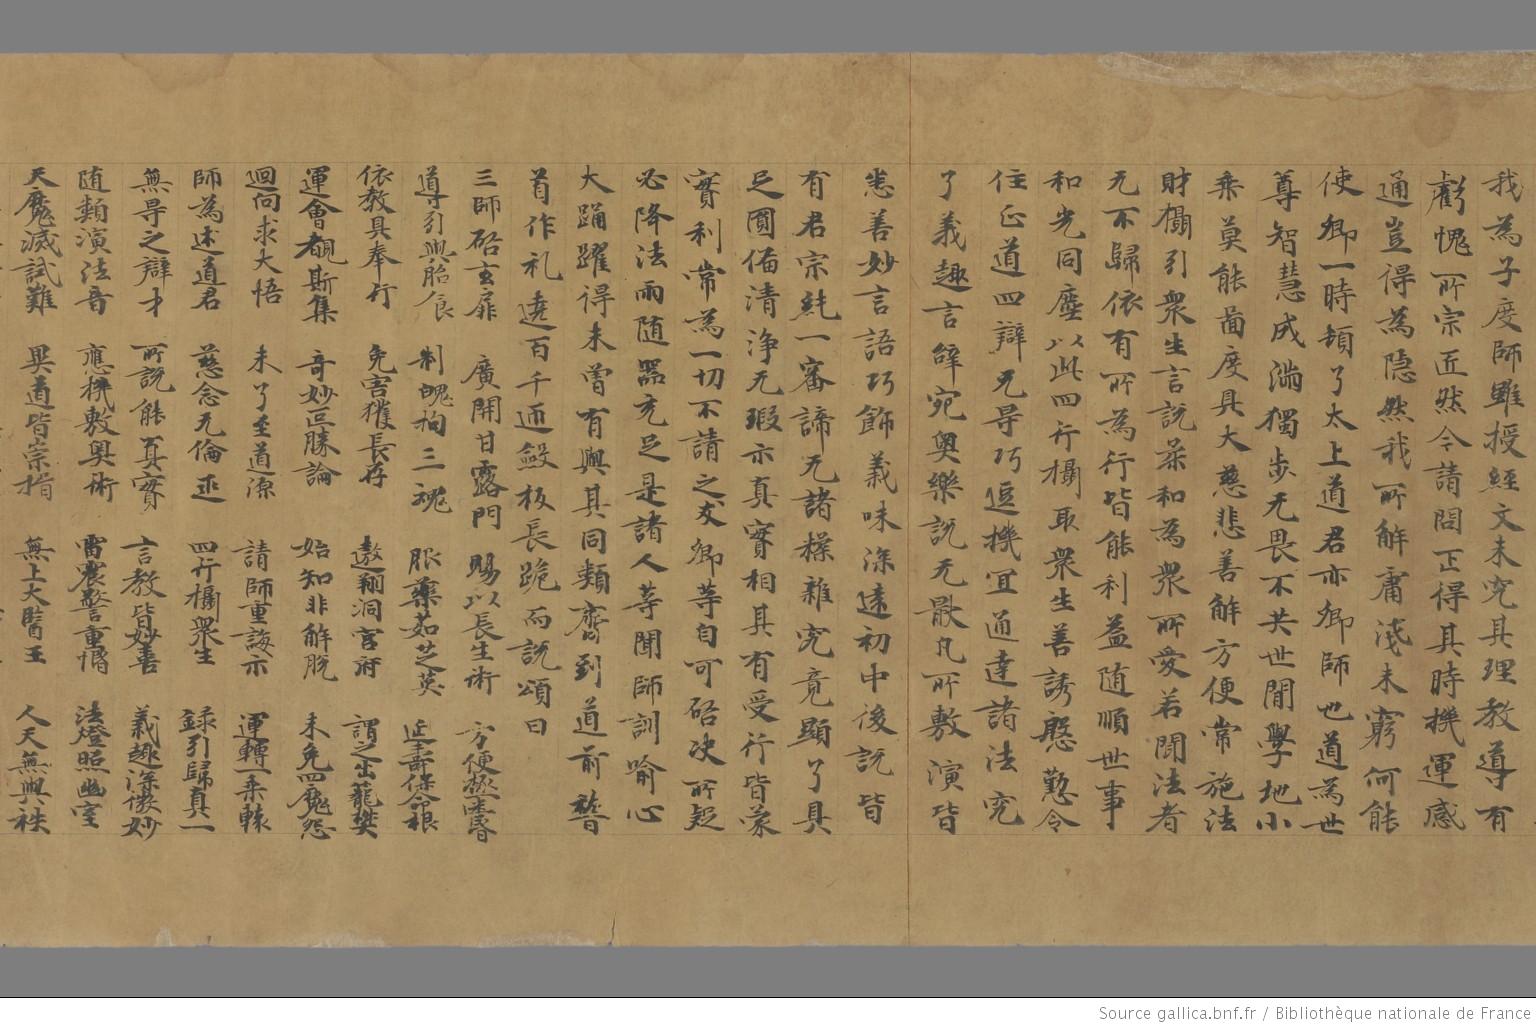 我為子度師雖授經文未究其理教導有
虧愧所宗匠然今請問正得其時機運感
通豈得為隱然我所解庸淺未窮何能
使卿一時頓了太上道君亦卿師也道為世
尊智慧成滿獨步无畏不共世閒學地小
乘莫能啚度具大慈悲善解方便常施法
財攝引衆生言說柔和為衆所愛若聞法者
无不歸依有所為行皆能利益随順世事
和光同塵以此四行攝取衆生善誘慇懃令
住正道四辯无㝵巧逗機宜通達諸法究
了義趣言辝宛奥樂說无歇凡所敷演皆
悉善妙言語巧飾義味深遠初中後說皆
有君宗純一審諦无諸糅雜究竟顯了具
足圓備清淨无瑕示真實相其有受行皆蒙
實利常為一切不請之友卿等自可啓决所疑
必降法雨随器充足是諸人等聞師訓喻心
大踊躍得未曾有與其同類齊到道前稽
首作礼遶百千迊斂板長跪而說頌曰
三師啓玄扉 廣開甘露門 賜以長生術 方便拯霄昏
導引與胎食 制魄拘三魂 服藥茹芝英 延壽保命根
依教具奉行 免害獲長存 遨翔洞宮府 謂之出籠樊
運會覩斯集 奇妙叵勝論 始知非解脫 未免四魔怨
迴向求大悟 未了至道源 請師重誨示 運轉一乘轅
師為述道君 慈念无倫迊 四行攝衆生 録引歸真一
無㝵之辯才 所說能真實 言教皆妙善 義趣深微妙
随類演法音 應機敷奥術 雷震警重惛 法燈照幽室
天魔滅試難 異道皆崇指 無上大醫王 人天無與祑
Source gallica.bnf.fr / Bibliothèque nationale de France